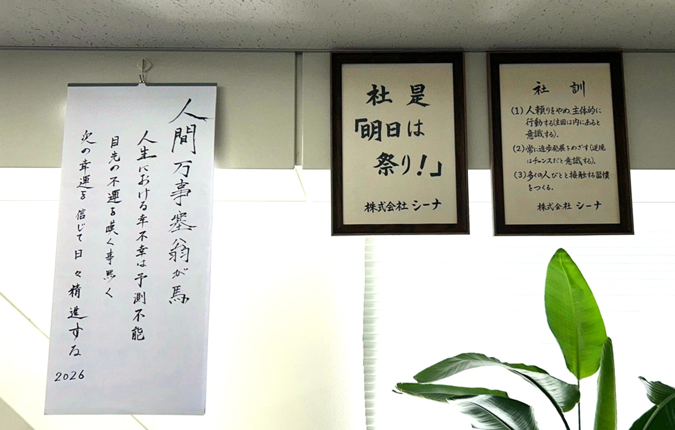 人間万事塞翁が馬
人生における幸不幸は予測不能
目先の不運を嘆く事無く
次の幸運を信じて日々精進する
2026
社是
「明日は
祭り!」
株式会社 シーナ
社訓
(1) 人頼りをやめ、主体的に
行動する(主因は内にあると
意識する)。
(2) 常に進歩発展をめざす(逆境
はチャンスだと意識する)。
(3) 多くの人びとと接触する習慣
をつくる。
株式会社 シーナ